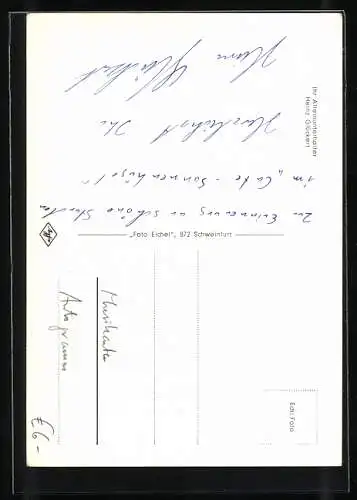 Zur Erinnerung an schöne Stunden
im „Cafe - Sonnenhügel"
Herzlichst Ihr
Heinz Glückert
Ihr Alleinunterhalter
Heinz Glückert
„Foto Eichel", 872 Schweinfurt
Agfa
Musikanten
Autogramm
€ 6-
Echt Foto